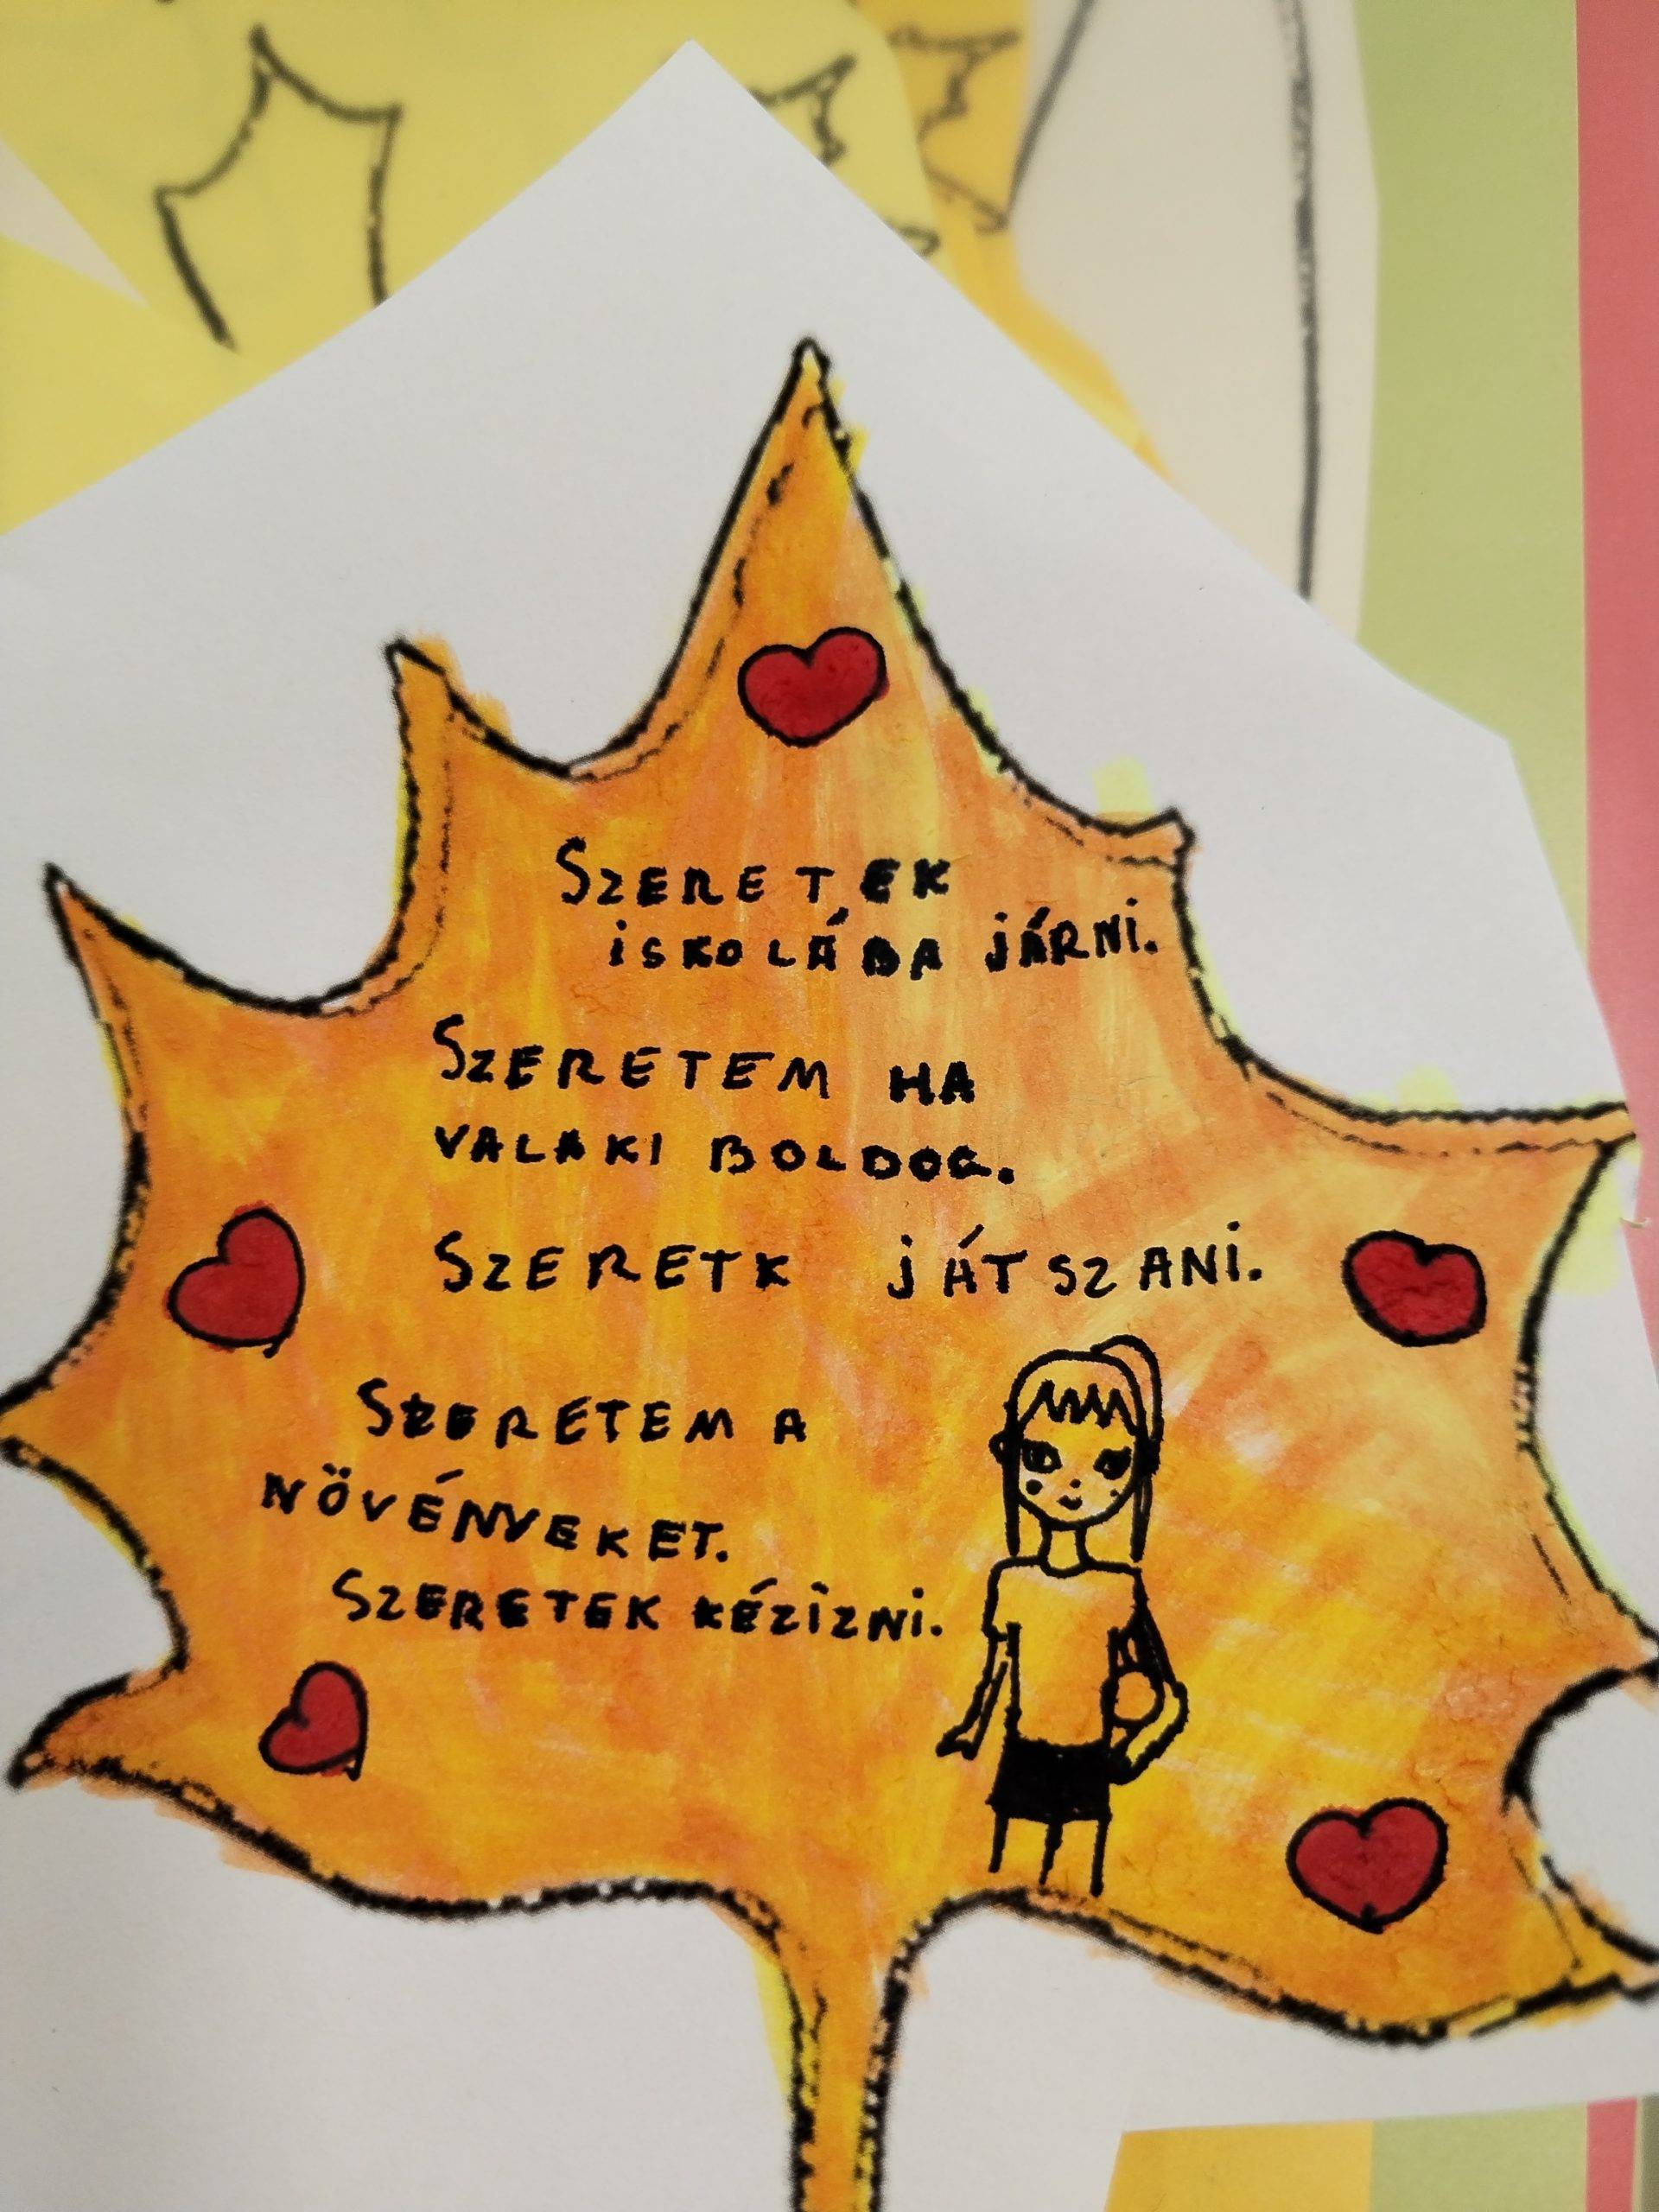 SZERETEK
iSKOLÁBA JÁRNi.
SZERETEM HA
VALAKI BOLDOG.
SZERETK JÁTSZANi.
SZERETEM A
NÖVÉNYEKET.
SZERETEK KÉZiZNi.